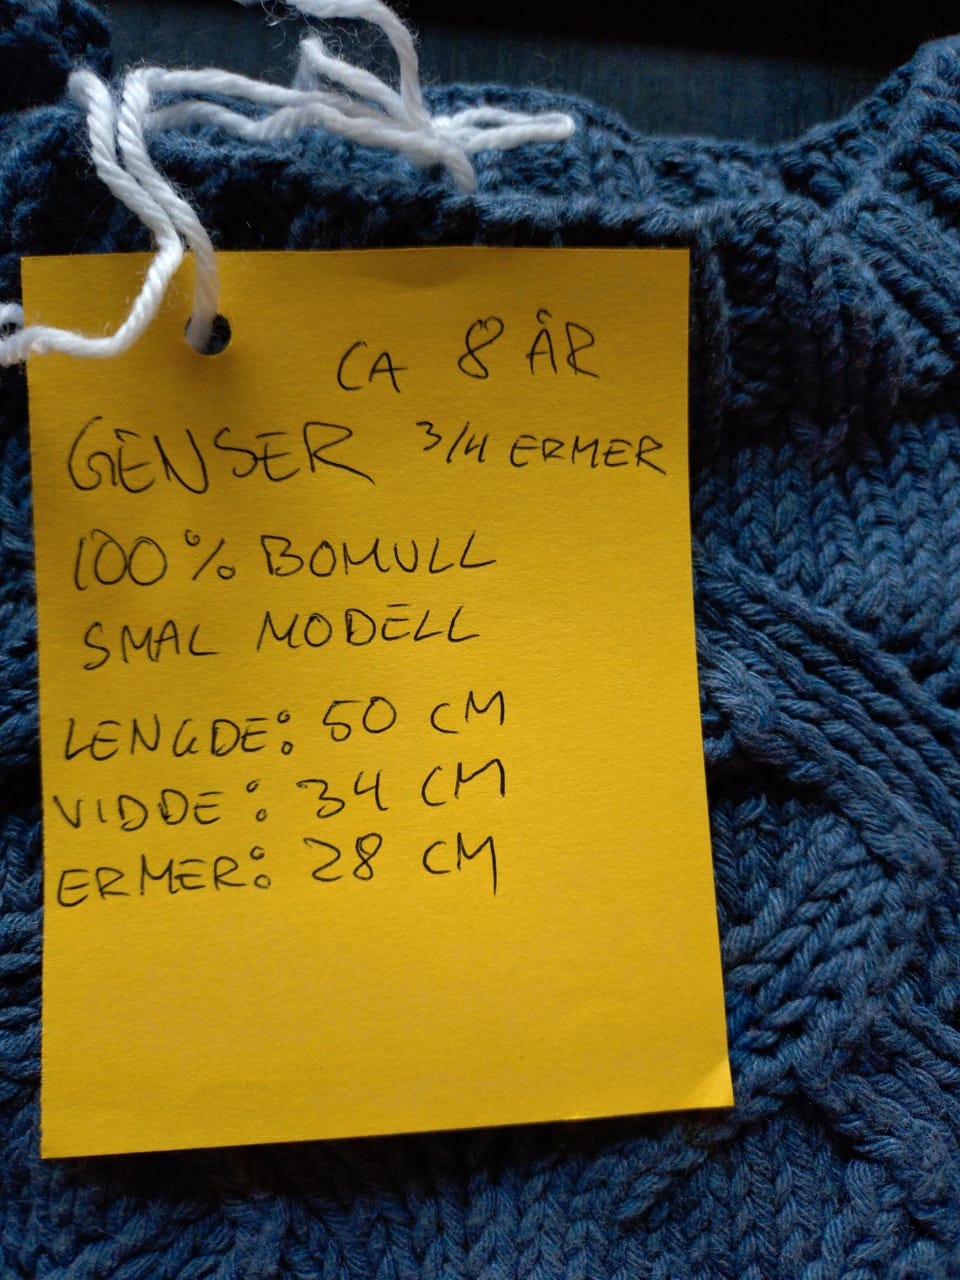 CA 8 ÅR
GENSER 3/4 ERMER
100% BOMULL
SMAL MODELL
LENGDE: 50 CM
VIDDE: 34 CM
ERMER: 28 CM